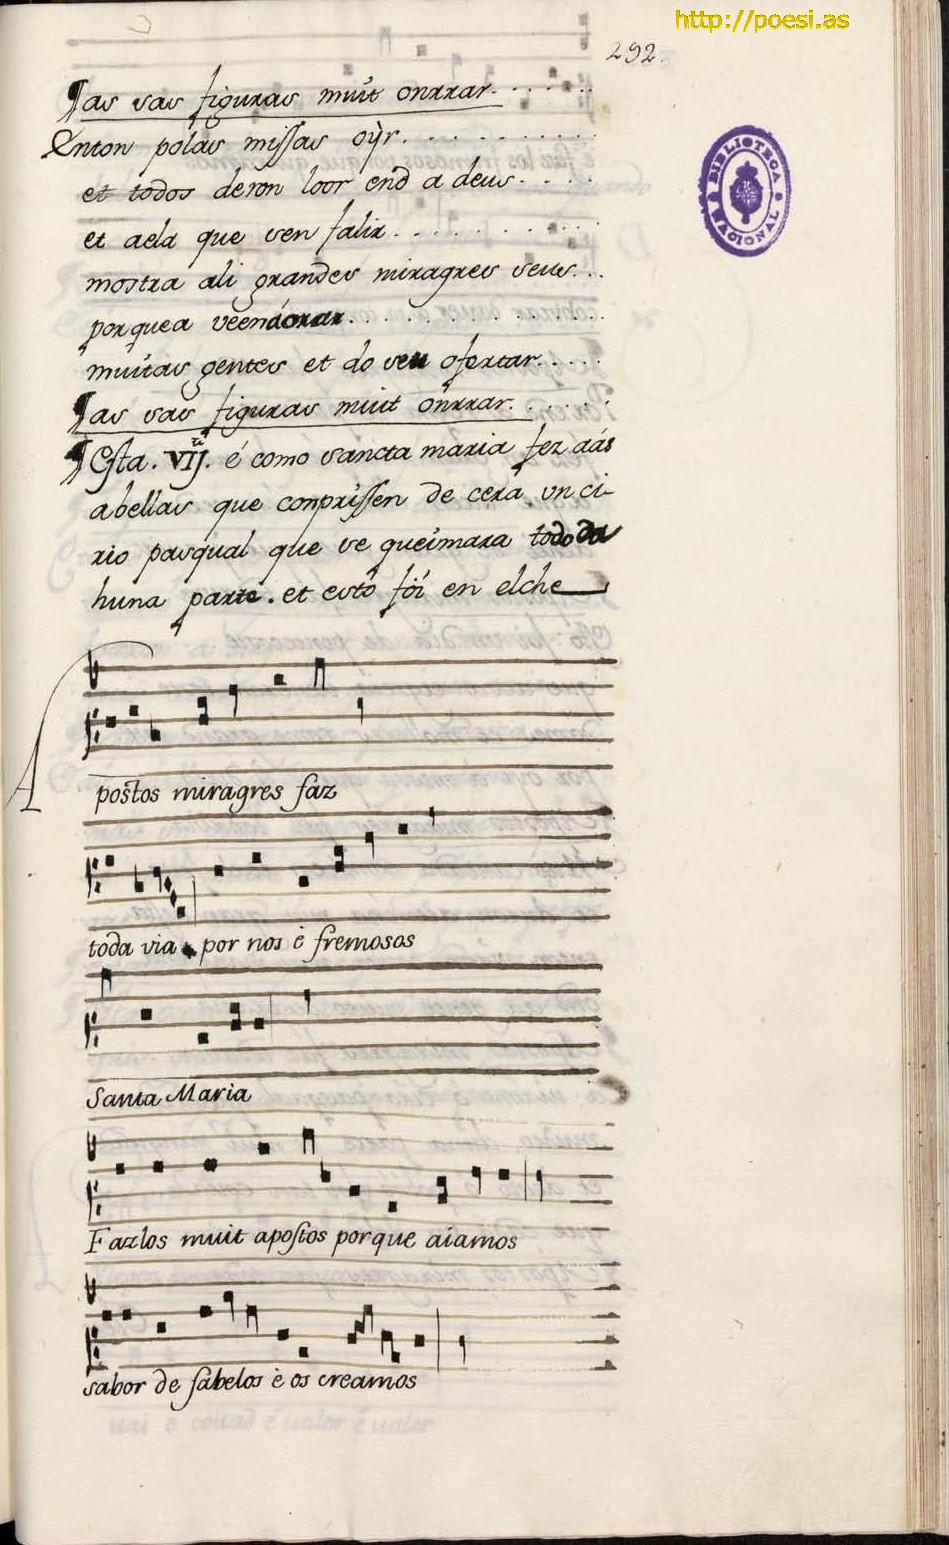 http://poesi.as
292.
¶as sas figuras muit onrrar.
Enton polas missas oỳr.
et todos deron loor end a deus.
et aela que ven falir.
mostra ali grandes miragres seus.
porquea veen aorar.
muitas gentes et do seu ofertar.
¶as sas figuras muit onrrar.
¶Esta. VIJ. é como sancta maria fez aás
abellas que conprissen de cera un ci-
rio pasqual que se queimara todo da
huna parte. et esto foi en elche
A
postos miragres faz
toda via por nos è fremosos
Santa Maria
Fazlos muit apostos porque aiamos
sabor de sabelos è os creamos
BIBLIOTECA NACIONAL